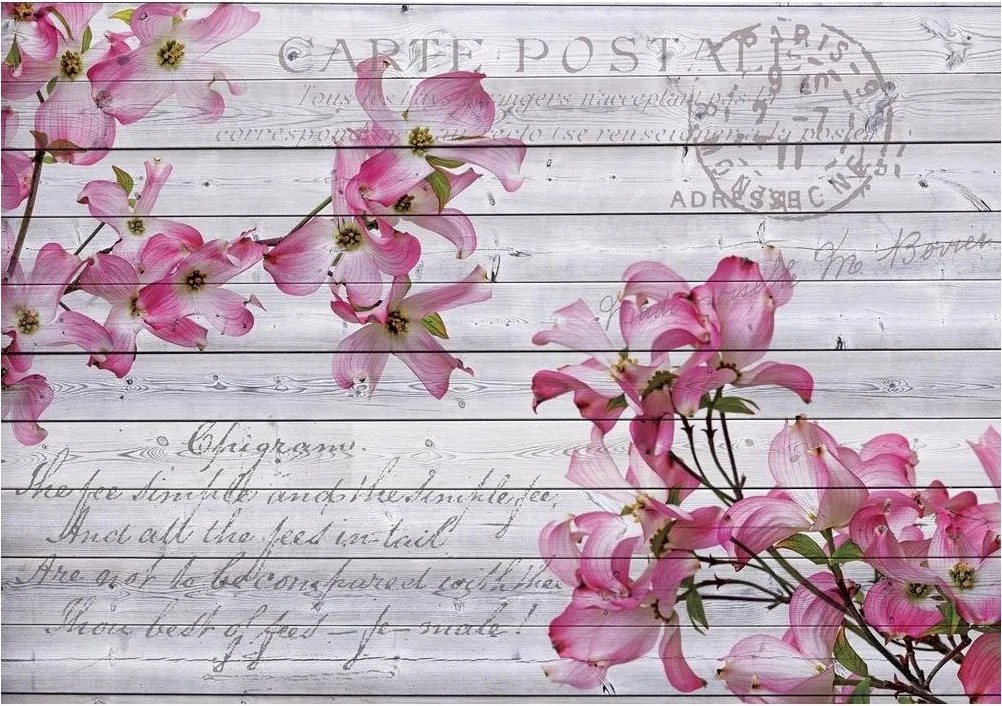 CARTE POSTALE
Tous les Pays étrangers n'acceptant pas la
correspondance au recto (se renseigner à la poste)
PARIS
ADRESSE
M Bovier
Epigram.
The fee simple and the simple fee,
And all the fees in tail
Are not to be compared with thee
Thou best of fees – fe-male!